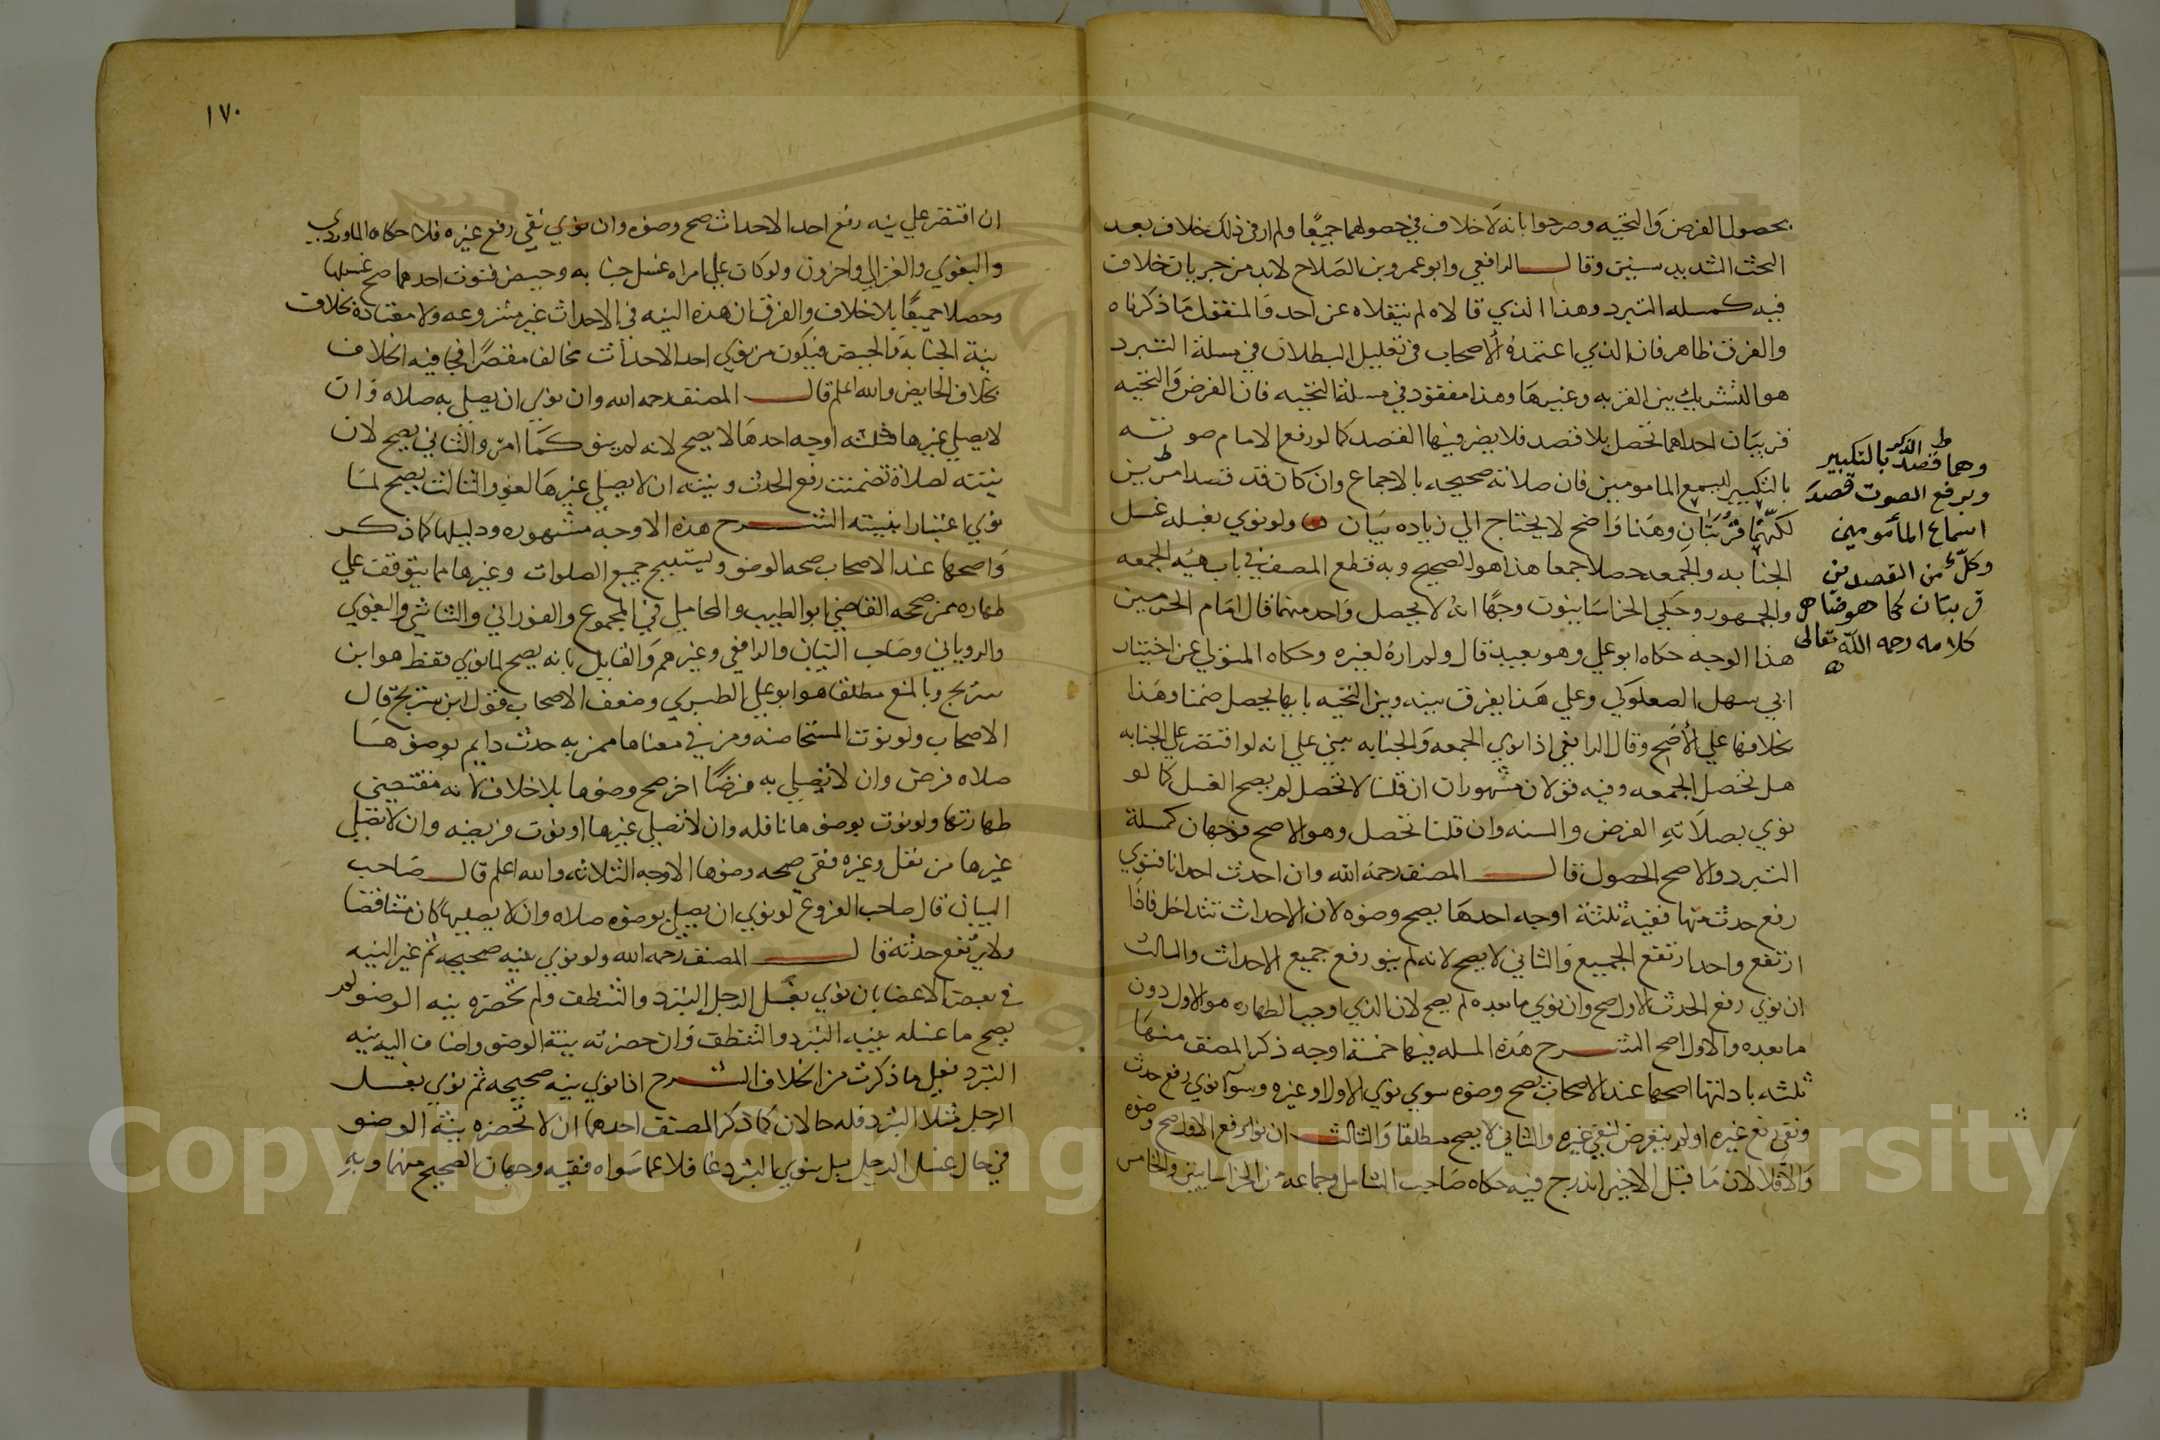 بحصول الفرض والتحيه وصرحوا بانه لا خلاف في حصولهما جميعا ولم ار في ذلك خلاف بعد
البحث الشديد سنين وقال الرافعي وابو عمرو بن الصلاح لا بد من جريان خلاف
فيه كمسله التبرد وهذا الذي قالاه لم ينقلاه عن احد والمنقول ما ذكرناه
والفرق ظاهر فان الذي اعتمده الاصحاب في تعليل البطلان في مسلة التبرد
هو التشريك بين القربه وغيرها وهذا مفقود في مسلة التحيه فان الفرض والتحيه
قربتان احداهما تحصل بلا قصد فلا يضر فيها القصد كما لو رفع الامام صوته
بالتكبير ليسمع المامومين فان صلاته صحيحه بالاجماع وان كان قد قصد امرين
لكنهما قربتان وهذا واضح لا يحتاج الي زياده بيان ولو نوي بغسله غسل
الجنابه والجمعه حصلا جمعا هذا هو الصحيح وبه قطع المصنف في باب هيه الجمعه
والجمهور وحكي الخراسانيون وجها انه لا يحصل واحد منهما قال امام الحرمين
هذا الوجه حكاه ابو علي وهو بعيد قال ولم اره لغيره وحكاه المتولي عن اختيار
ابي سهل الصعلوكي وعلي هذا يفرق بينه وبين التحيه بانها يحصل ضمنا وهذا
بخلافها علي الاصح وقال الرافعي اذا نوي الجمعه والجنابه يبني علي انه لو اقتصر علي الجنابه
هل تحصل الجمعه وفيه قولان مشهوران ان قلنا لا تحصل لم يصح الغسل كما لو
نوي بصلاته الفرض والسنه وان قلنا تحصل وهو الاصح فوجهان كمسلة
التبرد والاصح الحصول قال المصنف رحمه الله وان احدث احداثا فنوي
رفع حدث منها ففيه ثلثة اوجه احدها يصح وضوه لان الاحداث تتداخل فاذا
ارتفع واحد ارتفع الجميع والثاني لا يصح لانه لم ينو رفع جميع الاحداث والثالث
ان نوي رفع الحدث الاول صح وان نوي ما بعده لم يصح لان الذي اوجب الطهاره هو الاول دون
ما بعده والاول اصح الشرح هذه المسله فيها خمسة اوجه ذكر المصنف منها
ثلثه بادلتها اصحها عند الاصحاب يصح وضوه سوي نوي الاول او غيره وسوآ نوي رفع حدث
ونفي رفع غيره او لم يتعرض لنفي غيره والثاني لا يصح مطلقا والثالث ان نوي رفع الاول صح وضوه
والا فلا لان ما قبل الاخير اندرج فيه حكاه صاحب الشامل وجماعه من الخراسانيين والخامس
وهما قصد الذكر بالتكبير
وبرفع الصوت قصد
اسماع المأمومين
وكل من القصدين
قربتان كما هو ضاهر
كلامه رحمه الله تعالى
١٧٠
ان اقتصر علي نيه رفع احد الاحداث صح وضوه وان نوي نفي رفع غيره فلا حكاه الماوردي
والبغوي والغزالي واخرون ولو كان علي امراه غسل جنابه وحيض فنوت احدهما صح غسلها
وحصلا جميعا بلا خلاف والفرق ان هذه النيه في الاحداث غير مشروعه ولا معتادة بخلاف
نية الجنابة والحيض فيكون من نوي احد الاحداث مخالفا مقصرا فجا فيه الخلاف
بخلاف الحايض والله اعلم قال المصنف رحمه الله وان نوي ان يصلي به صلاه وان
لا يصلي غيرها فثلثه اوجه احدها لا يصح لانه لم ينو كما امر والثاني يصح لان
نيته لصلاة تضمنت رفع الحدث ونيته ان لا يصلي غيرها لغو والثالث يصح لما
نوي اعتبارا بنيته الشرح هذه الاوجه مشهوره ودليلها كما ذكر
واصحها عند الاصحاب صحه الوضو ويستبيح جميع الصلوات وغيرها مما يتوقف علي
طهاره ممن صححه القاضي ابو الطيب والمحاملي في المجموع والفوراني والشاشي والبغوي
والروياني وصاحب البيان والرافعي وغيرهم والقايل بانه يصح لما نوي فقط هو ابن
سريج وبالمنع مطلقا هو ابو علي الطبري وضعف الاصحاب قول ابن سريج قال
الاصحاب ولو نوت المستحاضه ومن في معناها ممن به حدث دايم بوضوها
صلاه فرض وان لا تصلي به فرضا اخر صح وضوها بلا خلاف لانه مقتضي
طهارتها ولو نوت بوضوها نافله وان لا تصلي غيرها او نوت فريضه وان لا تصلي
غيرها من نفل وغيره ففي صحه وضوها الاوجه الثلاثه والله اعلم قال صاحب
البيان قال صاحب الفروع لو نوي ان يصلي بوضوه صلاه وان لا يصليها كان متناقضا
ولا يرتفع حدثه قال المصنف رحمه الله ولو نوي بنيه صحيحه ثم غير النيه
في بعض الاعضا بان نوي بغسل الرجل التبرد والتنظف ولم تحضره نيه الوضو لم
يصح ما غسله بنيه التبرد والتنظف وان حضرته نية الوضو واضاف اليه نيه
التبرد فعلي ما ذكرت من الخلاف الشرح اذا نوي بنيه صحيحه ثم نوي بغسل
الرجل مثلا التبرد فله حالان كما ذكر المصنف احدهما ان لا تحضره نية الوضو
في حال غسل الرجل بل ينوي التبرد غافلا عما سواه ففيه وجهان الصحيح منهما وبه
Copyright © King Saud University